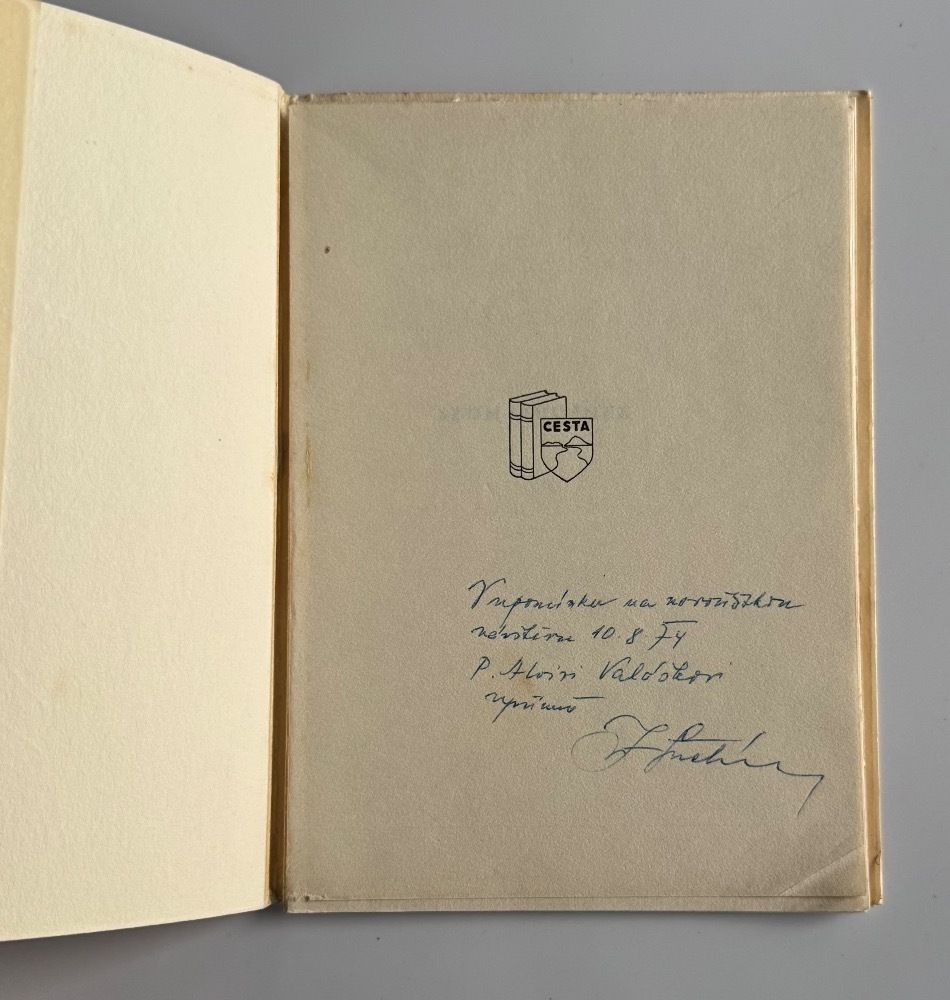 CESTA
Vzpomínku na novoříšskou
návštěvu 10. 8. 74
P. Aloisi Valáškovi
upřímně